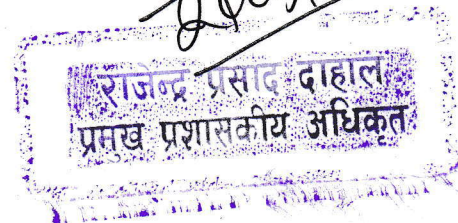 राजेन्द्र प्रसाद दाहाल
प्रमुख प्रशासकीय अधिकृत